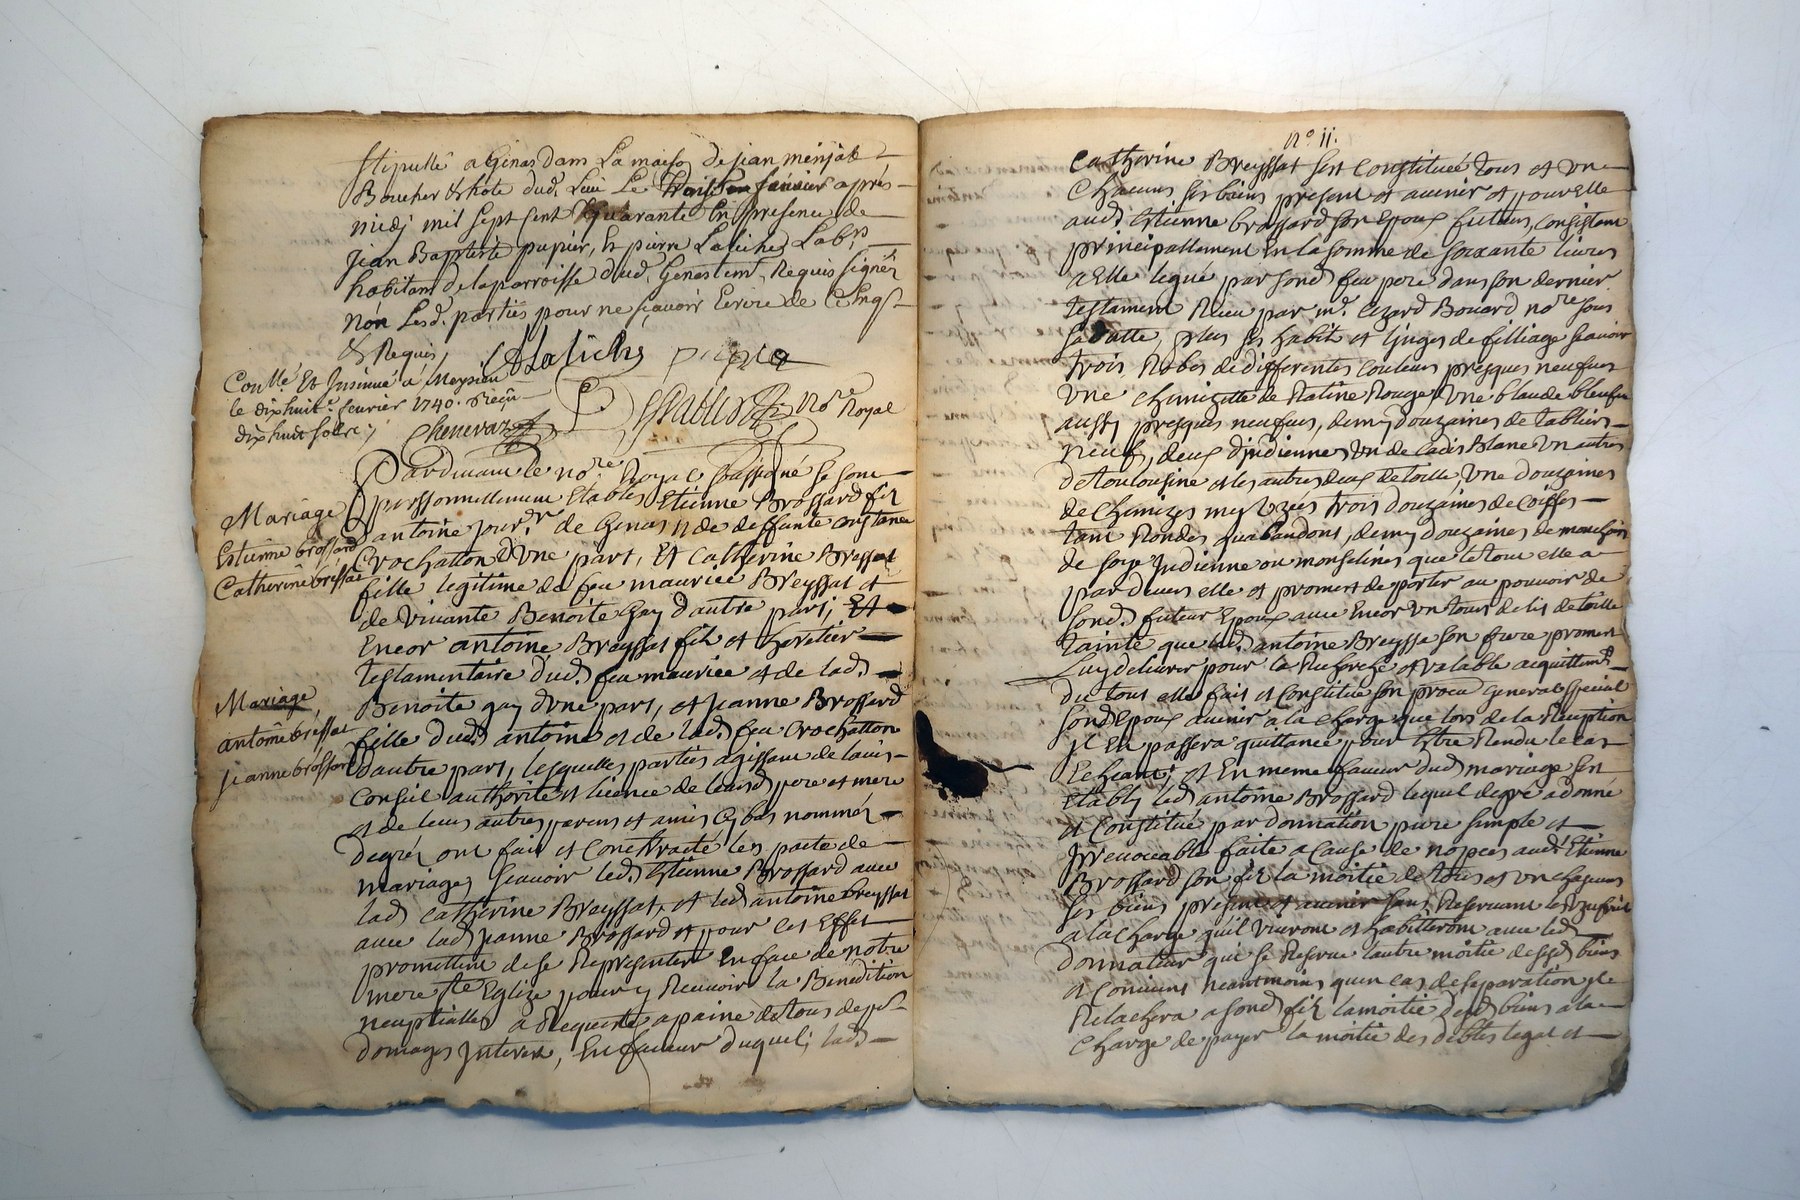 stipullé a Genas dans La maison de jean menjat
Boucher & hote dud. Lieu Le fevrier apres
midj mil sept cent Quarante En presence de
jean Baptiste pupier, & pierre Laliche Labrs
habitans de la parroisse dud. Genas tem. Requis signés
Non Lesd. parties pour ne sçavoir Ecrire de
& Requis,
Laliche pupie
Conllé Et Insinué a Meysieu
le dixhuite. fevrier 1740. Reçu
dixhuit sols
Chenevaz
Nore Royal
Pardevant le nore Royal soussigné se sont
Mariage
personnellement Etablis Etienne Brossard fils
antoine jourr de Genas & de deffunte
Estienne brossard
Crochatton d'Une part, Et Catherine Breyssat
Catherine brissat
fille legitime de feu maurice Breyssat et
de vivante Benoite Gay d'autre part; Et
Encor antoine Breyssat fils et heretier
testamentaire dud. feu maurice et de lad.
Mariage
Benoite gay d'Une part, et jeanne Brossard
antoine bressat
fille dud. antoine et de lad. feu Crochatton
jeanne brossard
d'autre part, lesquelles parties agissant de lavis
Conseil authorité et licence de leursd. pere et mere
et de leurs autres parens et amis Cy bas nommés
degrés ont fait et Contracté les pacte de
mariages scavoir led. Etienne Brossard avec
lad. Catherine Breyssat, et led. antoine breyssat
avec lad. jeanne Brossard et pour cet Effet
promettent de se Representer En face de notre
mere ste Eglize pour y Recevoir la Benedition
neuptialle a Requeste a paine de tous dept
domages Interest, En faveur duquel, lad.
No 11.
Catherine Breyssat sest Constituée tous et un
Chacuns ses biens present et avenir et pour elle
aud. Etienne brossard son Epoux futeur, Consistant
principallement En la somme de soixante livres
a Elle legué par sond. feu pere dans son dernier
testament Receu par me. Cezard Bouard nore sous
sa datte, plus ses habit et linges de filliage scavoir
trois Robes de differentes Couleurs presques neufves
Une Chemizette de Ratine Rouge Une blaude bleufve
aussy presques neufves, demy douzaines de tabliers
neufs, deux d'jndiennes Un de Cadis Blanc Un autre
de toulousine et les autres deux de toille, Une douzaines
de Chemizes trois douzaines de Coiffes
tant Rondes demy douzaines de mouchoirs
de soye Indienne ou monselines que le tout elle a
pardevers elle et promest de porter au pouvoir de
sond. futeur Epoux avec Encor Un tours de lis de toille
tainte que led. antoine Breyssa son frere promest
Luy delivrer pour la Recherche et valable acquittemt
du tout elle fait et Constitue son procu General special
sond. Epoux avenir a la charge que lors de la Reception
jl En passera quittance pour Estre Rendu le cas
Echeant; et En meme faveur dud. mariage sest
Etably led. antoine Brossard lequel de gré a donné
et Constitué par donnation pure simple et
Irrevocable faite a Cause de nopces aud. Etienne
Brossard son fils la moitié de tous et un chacuns
ses biens present et avenir sans Reservant les uzufruit
a la charge qu'il vivront et habitteront avec led.
donnateur qui se Reserve lautre moitié de sesd. biens
et Convenu neantmoins qu'en cas de separation jl
Relachera a sond. fils la moitié desd. biens a la
Charge de payer la moitié des debtes legat et